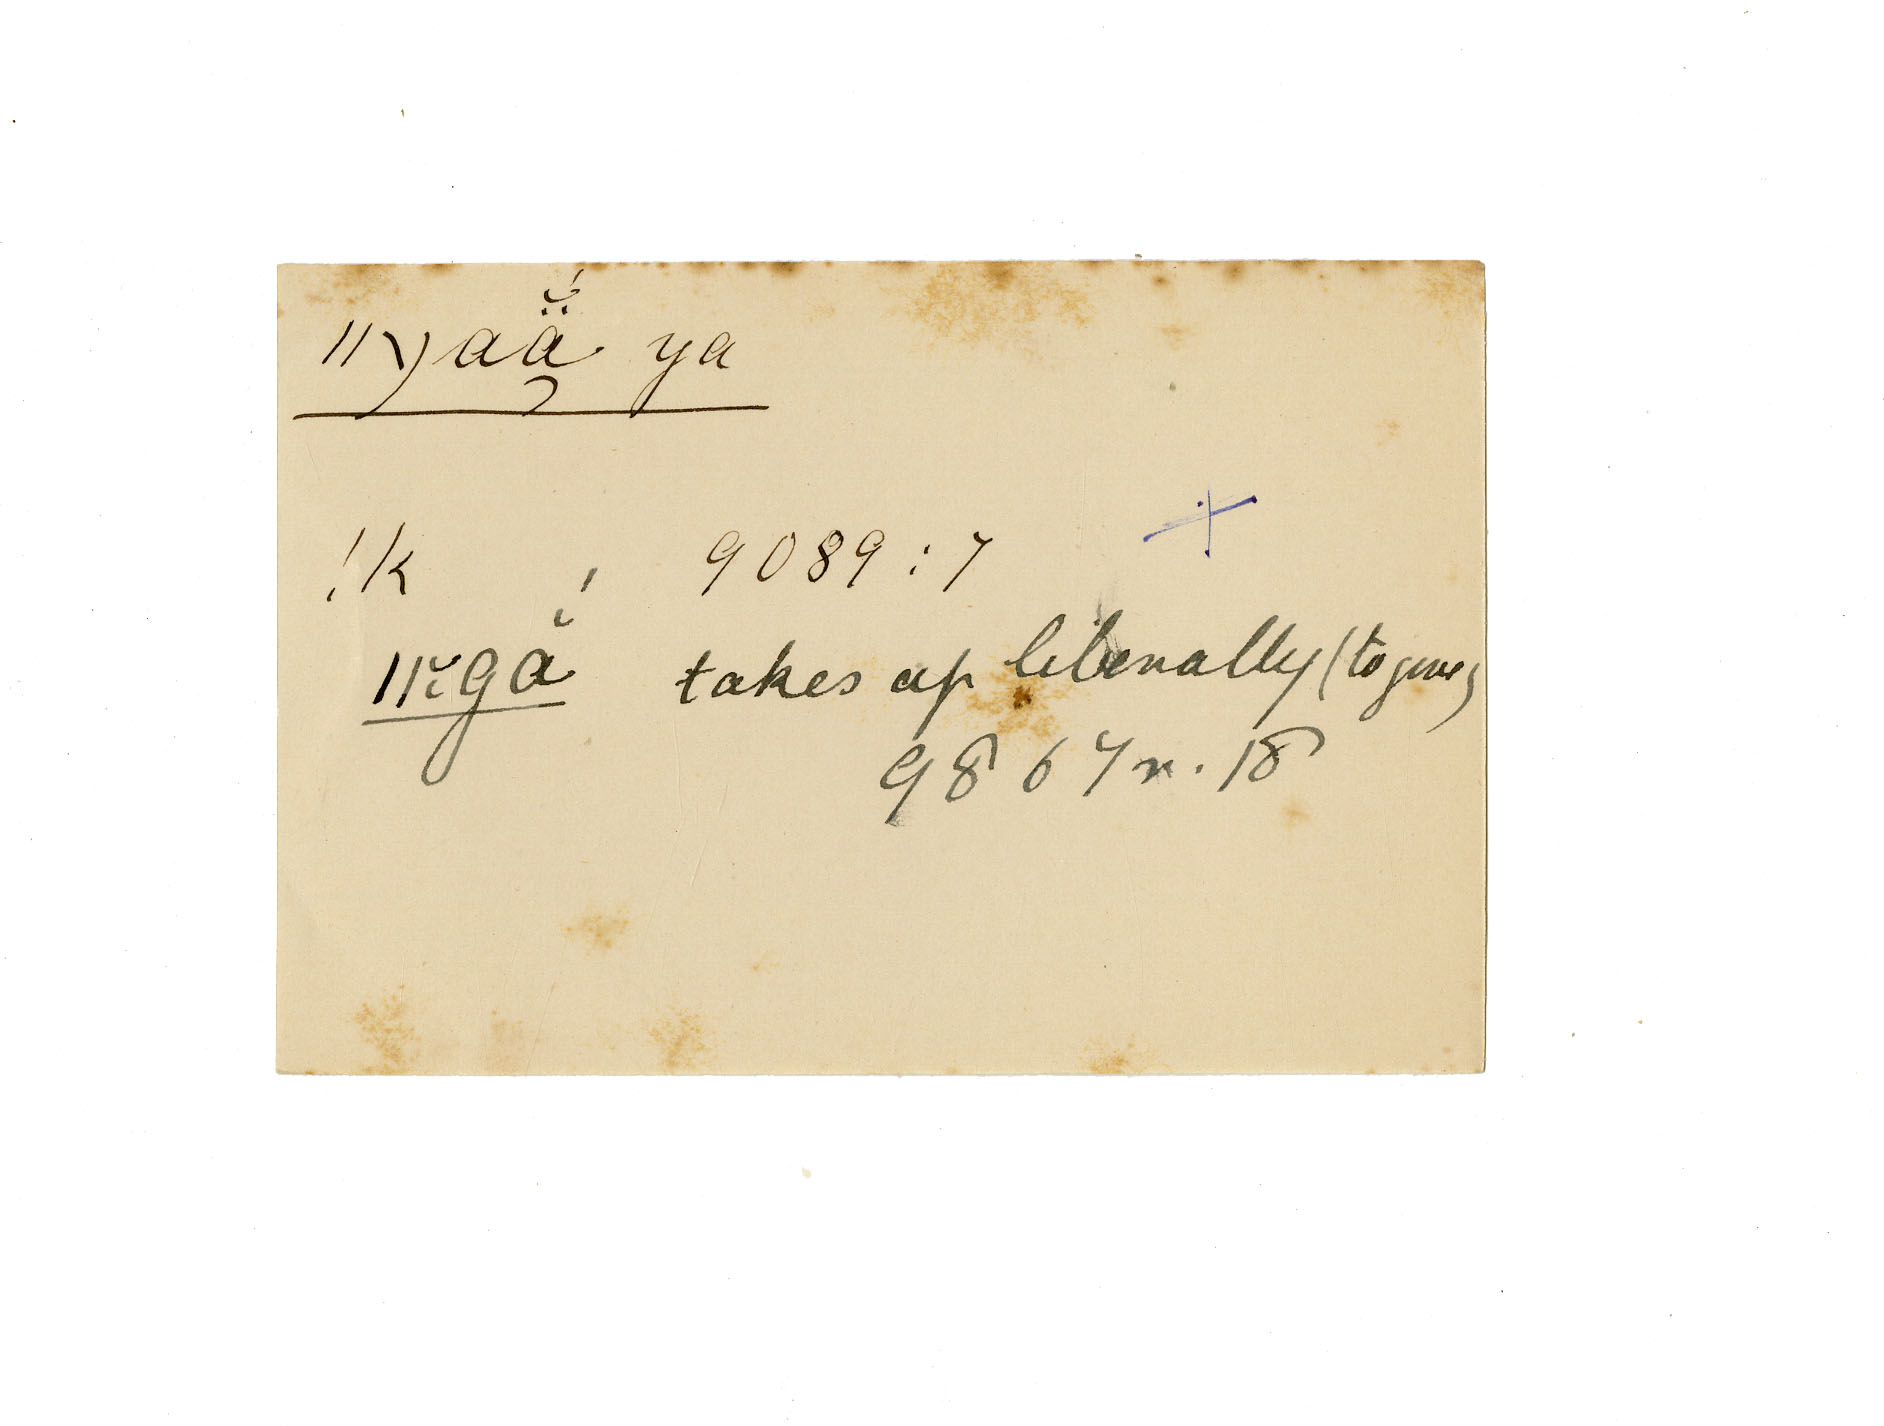 ǁya̤ä̆́ ya
!k 9089 : 7
ǁgä̆́ takes up liberally (to give)
9867 r. 18